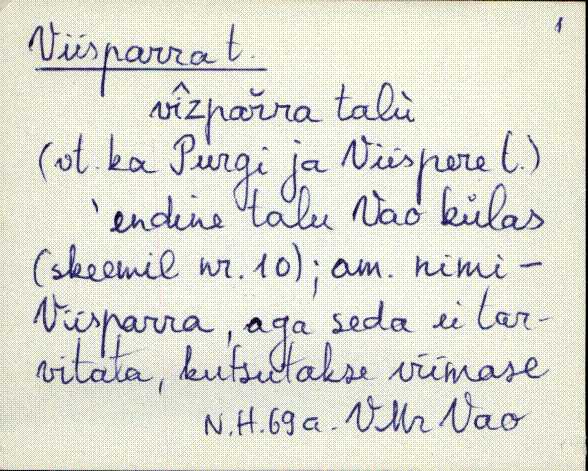 1
Viisparra t.
vîzpařra talù
(vt. ka Purgi ja Viispere t.)
'endine talu Vao külas
(skeemil nr. 10); am. nimi –
Viisparra, aga seda ei tar-
vitata, kutsutakse viimase
N.H. 69 a. VMr Vao